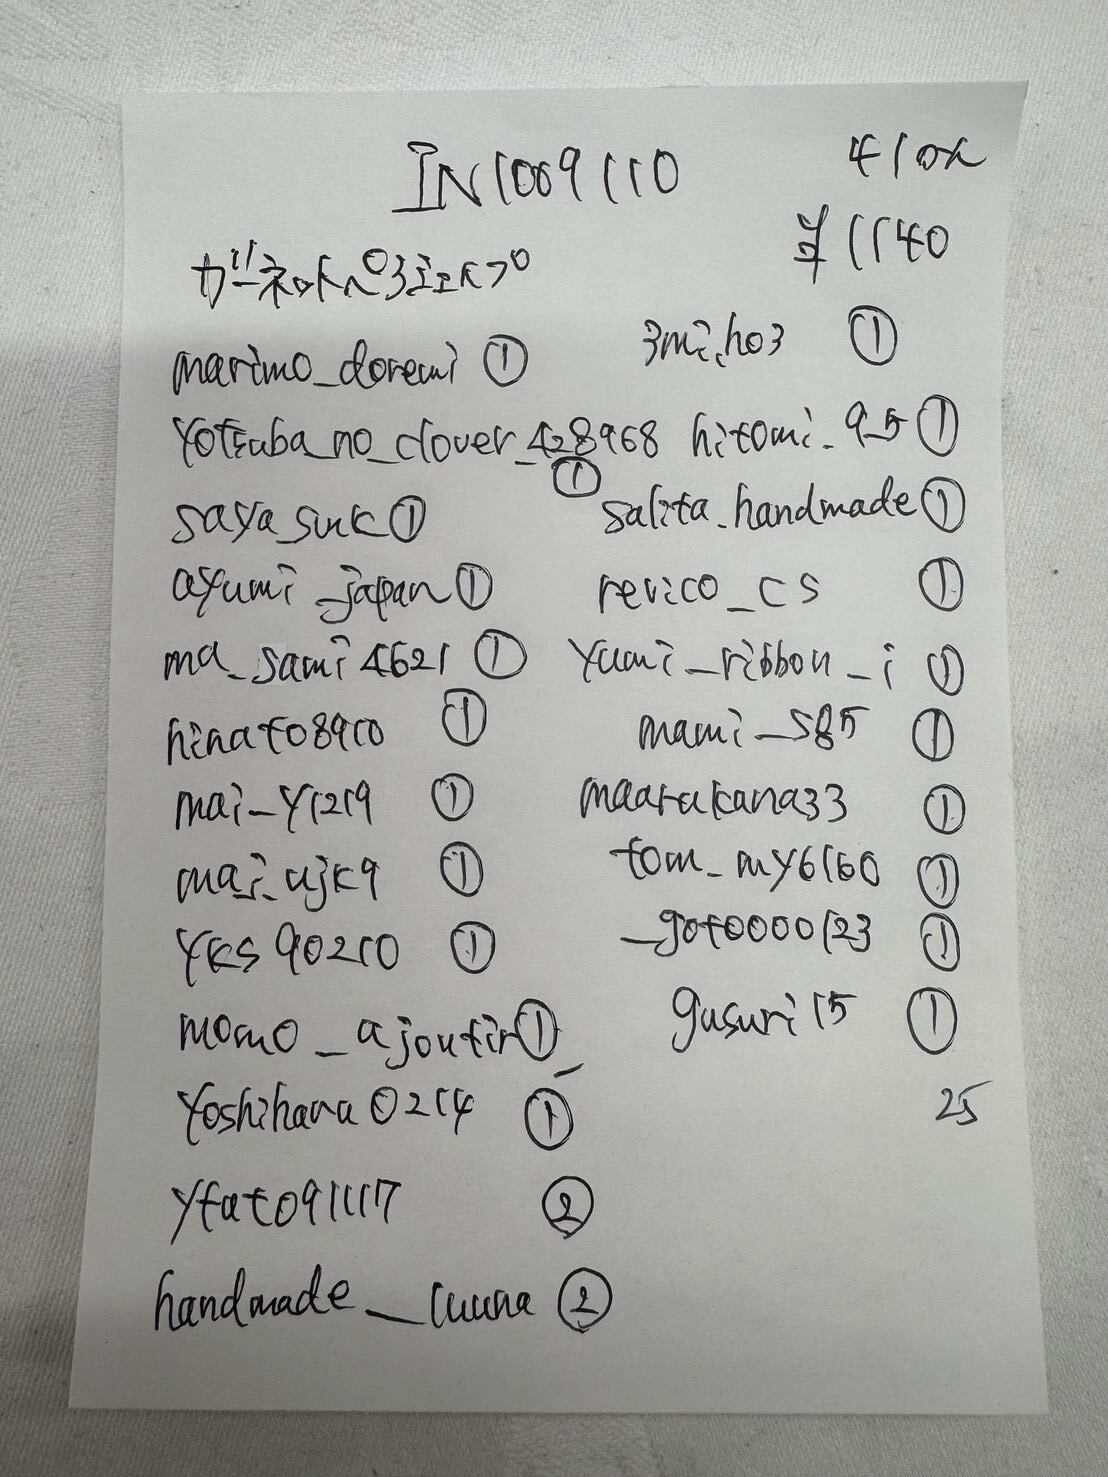 IN1009110
410x
¥1140
ガーネットペリドットドロップ
marimo_doremi ①
yotsuba_no_clover_428968 ①
saya_suk ①
ayumi_japan ①
ma_sami4621 ①
hinato8910 ①
mai_y1219 ①
mai_ujk9 ①
yks90210 ①
momo_ajoutir_ ①
yoshihana0214 ①
yfat091117 ②
handmade__luuna ②
3mi.ho3 ①
hitomi_9_5 ①
salita.handmade ①
revico_cs ①
yumi_ribbon_i ①
mami_s85 ①
maarukana33 ①
tom_my6160 ①
_goto0000123 ①
gusuri15 ①
25